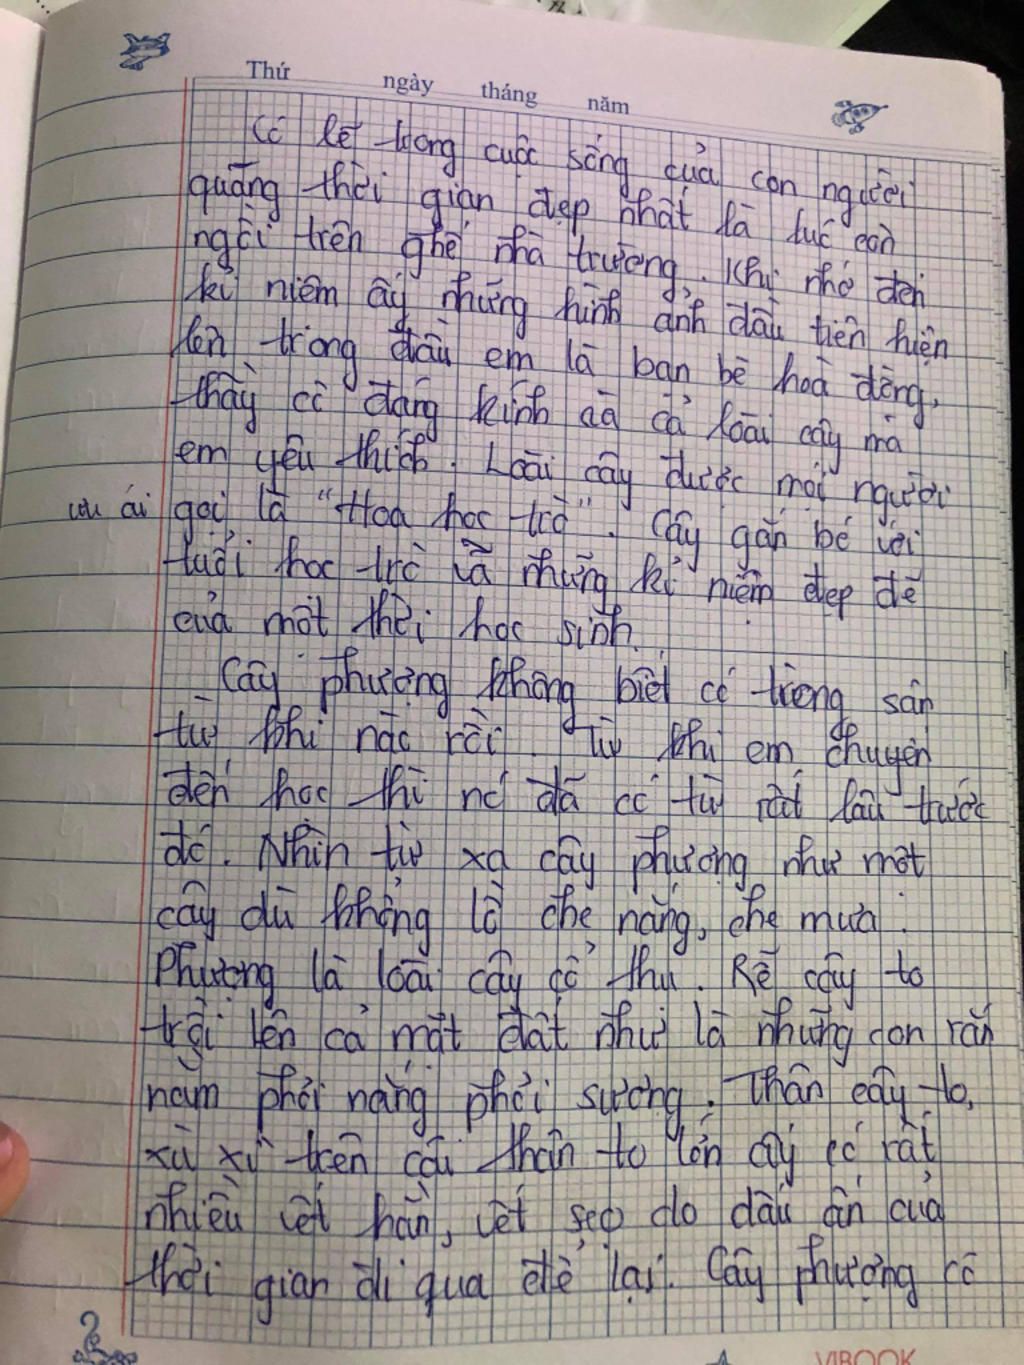 Thứ ngày tháng năm
Có lẽ trong cuộc sống của con người
quãng thời gian đẹp nhất là lúc còn
ngồi trên ghế nhà trường. Khi nhớ đến
kỉ niệm ấy những hình ảnh đầu tiên hiện
lên trong đầu em là bạn bè hoà đồng,
thầy cô đáng kính và cả loài cây mà
em yêu thích. Loài cây được mọi người
ưu ái gọi là "Hoa học trò". Cây gắn bó với
tuổi học trò và những kỉ niệm đẹp đẽ
của một thời học sinh.
Cây phượng không biết có trong sân
từ khi nào rồi. Từ khi em chuyển
đến học thì nó đã có từ rất lâu trước
đó. Nhìn từ xa cây phượng như một
cây dù khổng lồ che nắng, che mưa.
Phượng là loài cây cổ thụ. Rễ cây to
trồi lên cả mặt đất như là những con rắn
nằm phơi nắng phơi sương. Thân cây to,
xù xì trên cái thân to lớn ấy có rất
nhiều vết hằn, vết sẹo do dấu ấn của
thời gian đi qua để lại. Cây phượng có
VIBOOK